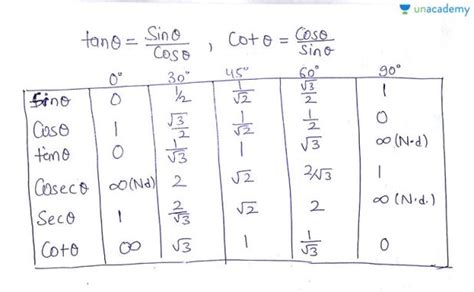 unacademy
tanθ = Sinθ/Cosθ , Cotθ = Cosθ/Sinθ
0° 30° 45° 60° 90°
Sinθ 0 1/2 1/√2 √3/2 1
Cosθ 1 √3/2 1/√2 1/2 0
tanθ 0 1/√3 1 √3 ∞(N.d)
Cosecθ ∞(N.d) 2 √2 2/√3 1
Secθ 1 2/√3 √2 2 ∞(N.d.)
Cotθ ∞ √3 1 1/√3 0